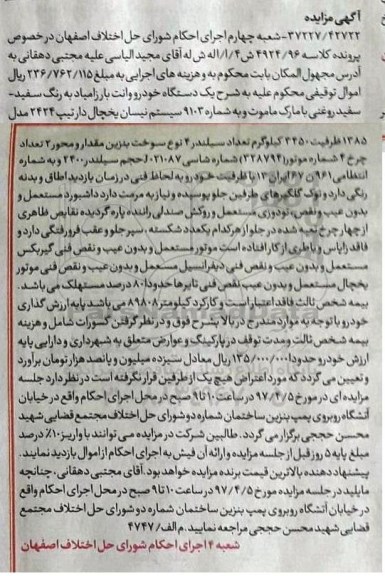 آگهی مزایده
۳۷۲۲۷/۴۲۷۲۲- شعبه چهارم اجرای احکام شورای حل اختلاف اصفهان در خصوص
پرونده کلاسه ۴۹۲۴/۹۶ ش۴/ا/ اله ش له آقای مجید الیاسی علیه مجتبی دهقانی به
آدرس مجهول المکان بابت محکوم به و هزینه های اجرایی به مبلغ ۲۳۶/۷۶۲/۱۱۵ ریال
اموال توقیفی محکوم علیه به شرح یک دستگاه خودرو وانت بار زامیاد به رنگ سفید-
سفید روغنی با مارک ماموت و به شماره ۹۱۰۳ سیستم نیسان یخچال دار تیپ ۲۴۲۴ مدل
۱۳۸۵ ظرفیت ۳۳۵۰ کیلوگرم تعداد سیلندر ۴ نوع سوخت بنزین مقدار و محور ۲ تعداد
چرخ ۴ شماره موتور (۳۲۸۷۹۴) شماره شاسی ۰۲۱۰۸۷ J حجم سیلندر ۲۴۰۰ و به شماره
انتظامی ۹۶۱ ن ۶۷ ایران ۱۳ با ظرفیت خودرو به لحاظ فنی در زمان بازدید اطاق و بدنه
رنگی دارد و نوک گلگیرهای طرفین جلو پوسیده و نیاز به مرمت دارد داشبورد مستعمل و
بدون عیب و نقص، تودوزی مستعمل و روکش صندلی راننده پاره گردیده نقایص ظاهری
از چهار چرخ تعبیه شده در جلو از هرکدام یک عدد شکسته، سپر جلو و عقب فرورفتگی دارد و
فاقد زاپاس و باطری از کار افتاده است موتور مستعمل و بدون عیب و نقص فنی گیربکس
مستعمل و بدون عیب و نقص فنی دیفرانسیل مستعمل و بدون عیب و نقص فنی موتور
یخچال مستعمل و بدون عیب نقص فنی تایرها حدودا ۸۰ درصد مستهلک می باشد.
بیمه شخص ثالث فاقد اعتبار است و کارکرد کیلومتر ۸۹۸۰۸ می باشد پایه ارزش گذاری
خودرو با توجه به موارد مندرج در بالا بشرح فوق و در نظر گرفتن کسورات شامل و هزینه
بیمه شخص ثالث و مدت توقف در پارکینگ و عوارض متعلق به شهرداری و دارایی پایه
ارزش خودرو حدودا ۱۳۵/۰۰۰/۰۰۰ ریال معادل سیزده میلیون و پانصد هزار تومان برآورد
و تعیین می گردد که مورد اعتراض هیچ یک از طرفین قرار نگرفته است در نظر دارد جلسه
مزایده ای در مورخ ۹۷/۴/۵ در ساعت ۱۰ تا ۹ صبح در محل اجرای احکام واقع در خیابان
آتشگاه روبروی پمپ بنزین ساختمان شماره دو شورای حل اختلاف مجتمع قضایی شهید
محسن حججی برگزار می گردد. طالبین شرکت در مزایده می توانند با واریز ۱۰٪ درصد
مبلغ پایه ۵ روز قبل از جلسه مزایده و ارائه آن فیش به اجرای احکام از اموال بازدید نمایند.
پیشنهاد دهنده بالاترین قیمت برنده مزایده خواهد بود. آقای مجتبی دهقانی، چنانچه
مایلید در جلسه مزایده مورخ ۹۷/۴/۵ در ساعت ۱۰ تا ۹ صبح در محل اجرای احکام واقع
در خیابان آتشگاه روبروی پمپ بنزین ساختمان شماره دو شورای حل اختلاف مجتمع
قضایی شهید محسن حججی مراجعه نمایید. م الف/ ۴۷۴۷
شعبه ۴ اجرای احکام شورای حل اختلاف اصفهان